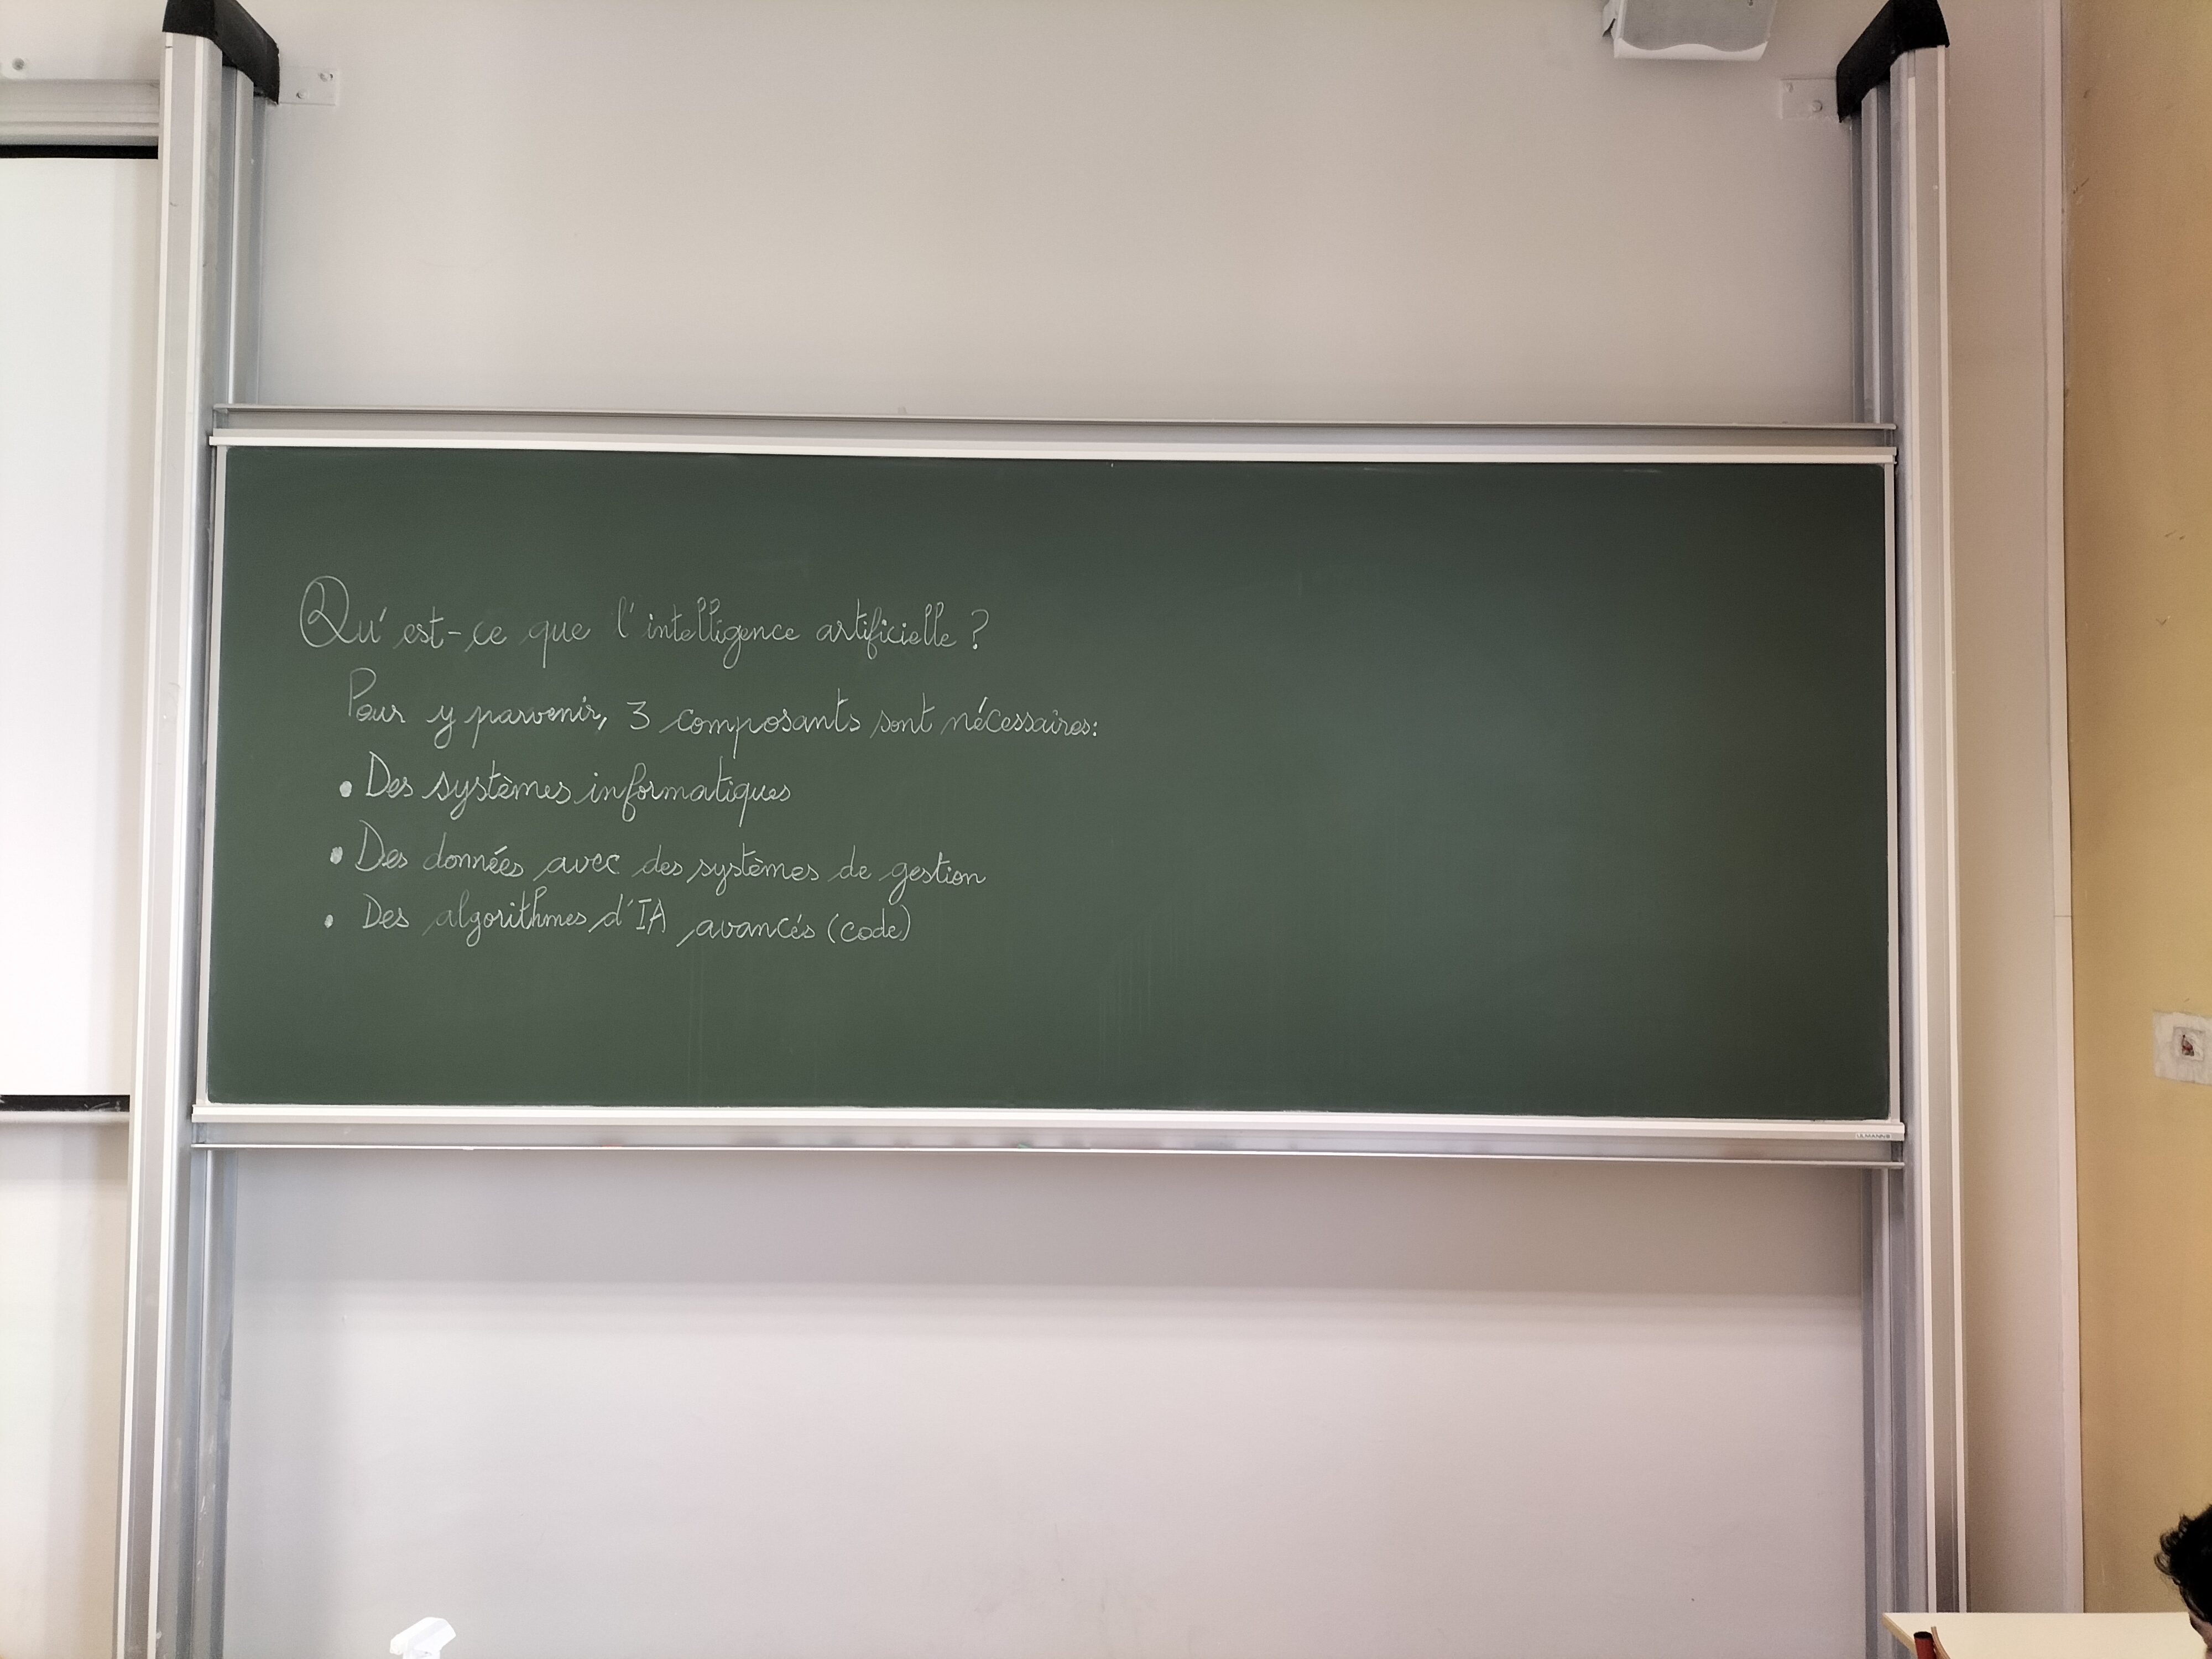 Qu'est-ce que l'intelligence artificielle ?
Pour y parvenir, 3 composants sont nécessaires:
• Des systèmes informatiques
• Des données avec des systèmes de gestion
• Des algorithmes d'IA avancés (code)